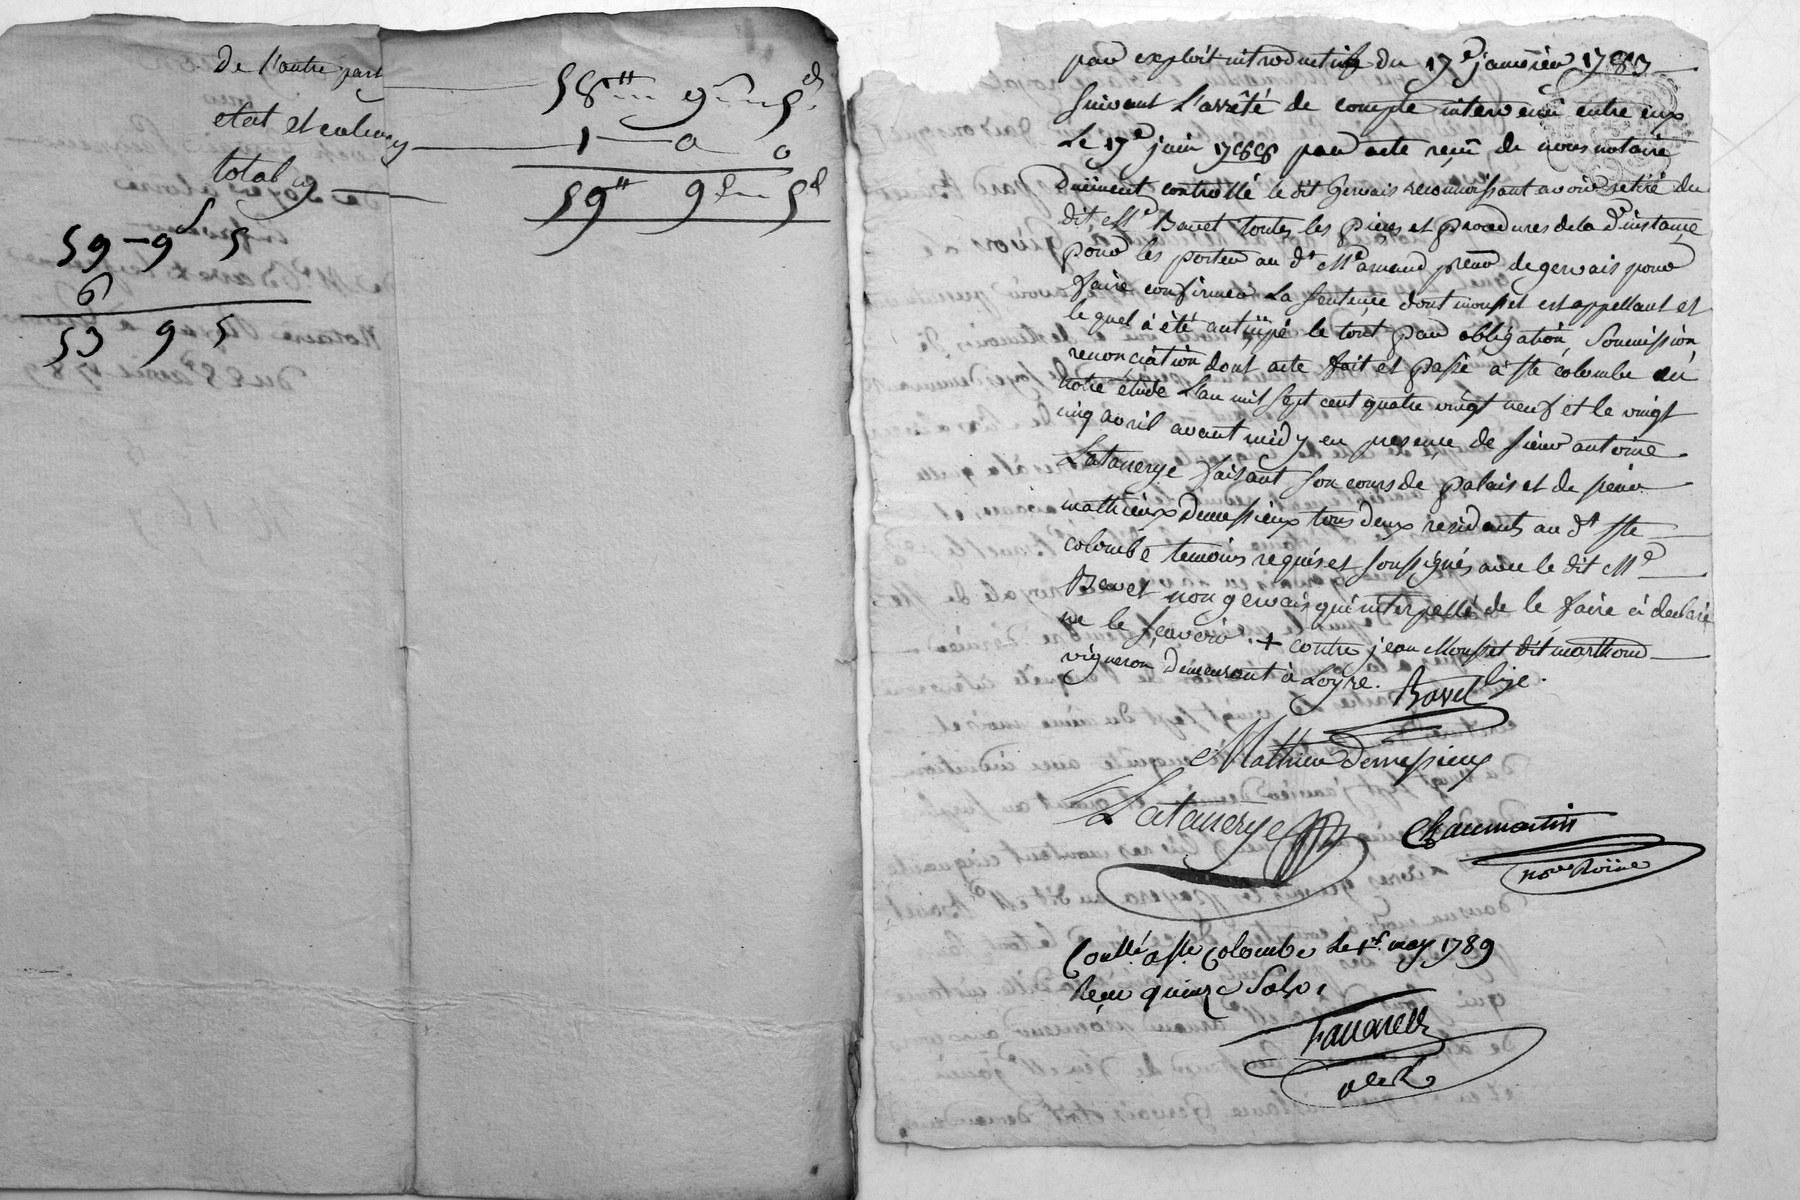 de l'autre part 58 ₶ 9 s 5 d
etat et calcul 1 0 0
total cy 59 ₶ 9 s 5 d
59 - 9 s 5
6
53 9 5
par exploit introductif du 17e janvier 1787
suivant l'arrêté de compte intervenu entre eux
le 17e juin 1788 par acte reçu de nous notaire
duëment controllé le dit gervais reconnoissant avoir retiré du
dit Me Bavet toutes les pieces et procedures de la de instance
pour les porter au dt Me amand procr de gervais pour
faire confirmer la sentence dont mousset est appellant et
lequel à été anticipé le tout par obligation, soumission
renonciation dont acte fait et passé à ste colombe en
notre étude l'an mil sept cent quatre vingt neuf et le vingt
cinq avril avant midy en presence de sieur antoine
Latanerye faisant son cours de palais et de sieur
mathieux Demessieux tous deux residants au dt ste
colombe temoins requis et soussignés avec le dit Me
Bavet non gervais qui interpellé de le faire à declaré
ne le sçavoir. + contre jean Mousset dit marthoud
vigneron demeurant à Loyre. Bavet
Mathieu Demessieux
Latanerye Chaumartin
nore Roïal
Conllé à ste Colombe le 1er may 1789
Reçu quinze sols